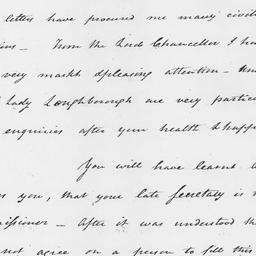 letters have procured me many civili
ions — From the Lord Chancellor I ha
very markt & pleasing attention — and
Lady Loughborough are very particu
enquiries after your health & happ
You will have learnt b
you, that your late Secretary is n
missioner — After it was understood th
not agree on a person to fill this